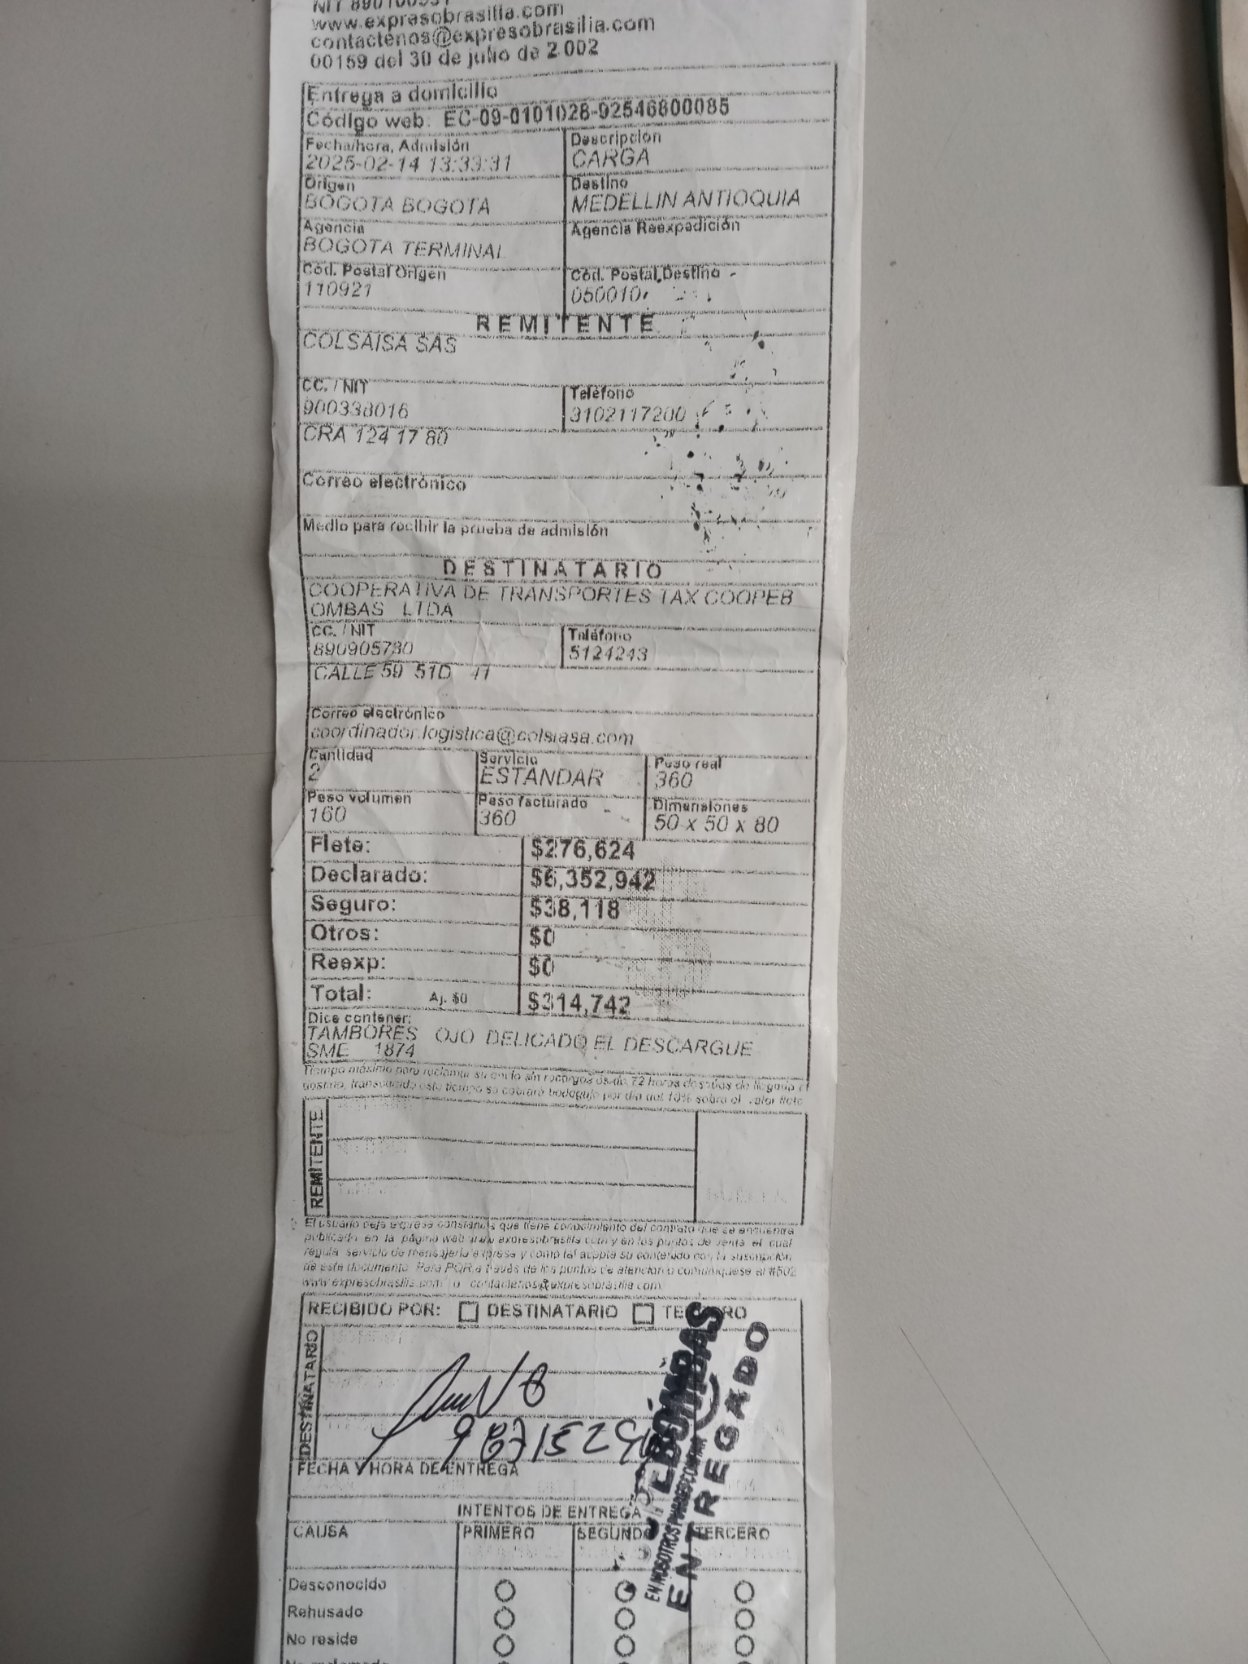 www.expresobrasilia.com
contactenos@expresobrasilia.com
00159 del 30 de julio de 2 002
Entrega a domicilio
Código web: EC-09-0101028-92546800085
Fecha/hora, Admisión Descripcion
2025-02-14 13:33:31 CARGA
Origen Destino
BOGOTA BOGOTA MEDELLIN ANTIOQUIA
Agencia Agencia Reexpedición
BOGOTA TERMINAL
Cód. Postal Origen Cód. Postal Destino
110921 050010
REMITENTE
COLSAISA SAS
CC. / NIT Teléfono
900338016 3102117200
CRA 124 17 80
Correo electrónico
Medio para recibir la prueba de admisión
DESTINATARIO
COOPERATIVA DE TRANSPORTES TAX COOPEB
OMBAS LTDA
CC. / NIT Teléfono
890905780 5124243
CALLE 59 51D 41
Correo electrónico
coordinador.logistica@colsiasa.com
Cantidad Servicio Peso real
2 ESTANDAR 360
Peso volumen Peso facturado Dimensiones
160 360 50 x 50 x 80
Flete: $276,624
Declarado: $6,352,942
Seguro: $38,118
Otros: $0
Reexp: $0
Total: Aj. $0 $314,742
Dice contener:
TAMBORES OJO DELICADO EL DESCARGUE
SME 1874
Tiempo máximo para reclamar su envío sin recargos es de 72 horas después de llegado a
destino, transcurrido este tiempo se cobrará bodegaje por día del 10% sobre el valor flete
REMITENTE
El usuario deja expresa constancia que tiene conocimiento del contrato que se encuentra
publicado en la página web www.expresobrasilia.com y en los puntos de venta el cual
regula servicio de mensajería expresa y como tal acepta su contenido con la suscripción
de este documento. Para PQR a través de los puntos de atención o comuníquese al #502
www.expresobrasilia.com o contactenos@expresobrasilia.com
RECIBIDO POR: DESTINATARIO TERCERO
DESTINATARIO
FECHA Y HORA DE ENTREGA
ENTREGADO
INTENTOS DE ENTREGA
CAUSA PRIMERO SEGUNDO TERCERO
Desconocido
Rehusado
No reside